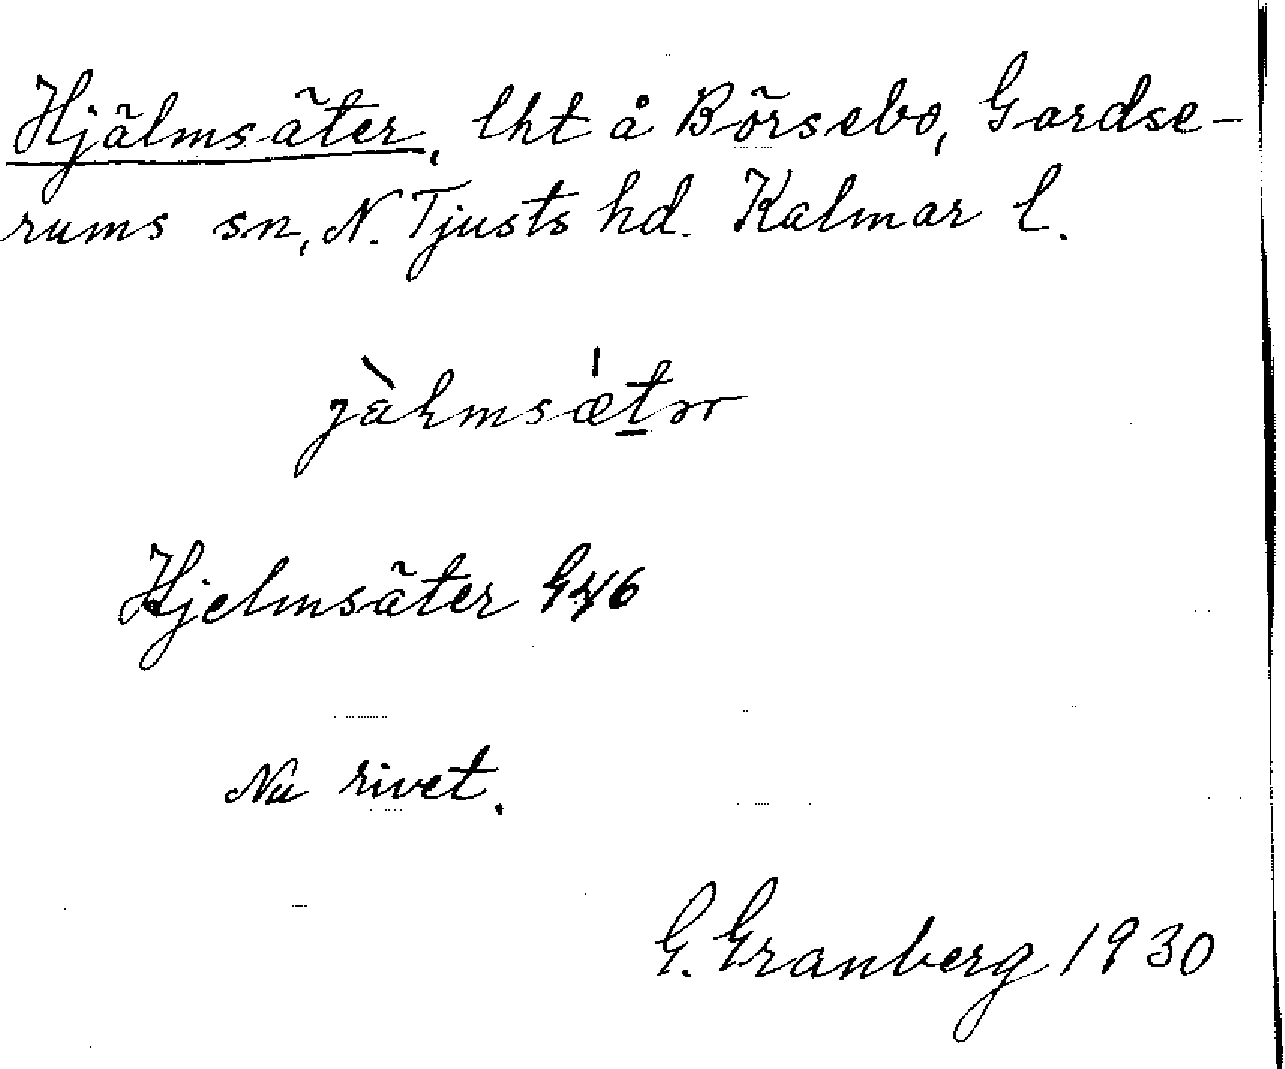 Hjälmsäter, lht å Börsebo, Gardse-
rums sn, N. Tjusts hd. Kalmar l.
Hjelmsäter
Nu rivet.
G. Granberg 1930